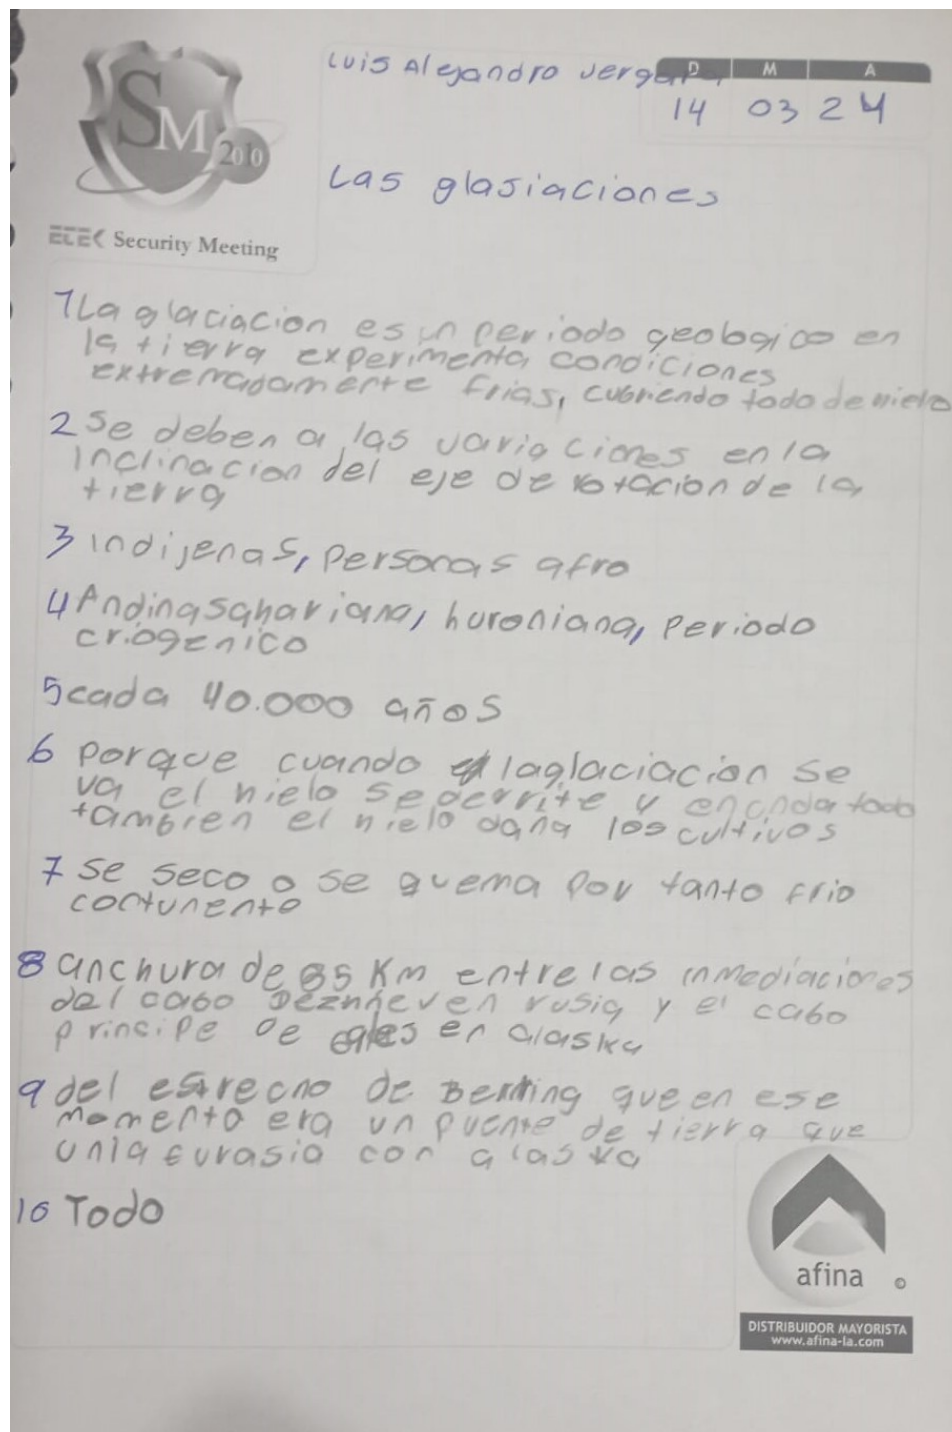 Luis Alejandro Vergara
D M A
14 03 24
SM 2010
Las glasiaciones
ETEK Security Meeting
1 La glaciacion es un periodo geologico en
la tierra experimenta condiciones
extremadamente frias, cubriendo todo de hielo
2 Se deben a las variaciones en la
inclinacion del eje de rotacion de la
tierra
3 indijenas, personas afro
4 Andinasahariana, huroniana, periodo
criogenico
5 cada 40.000 años
6 porque cuando la glaciacion se
va el hielo se derrite y enonda todo
tambien el hielo daña los cultivos
7 se seco o se quema por tanto frio
contunento
8 anchura de 85 Km entre las inmediaciones
del cabo Dezhneven rusia y el cabo
principe de gales en alaska
9 del estrecho de Bering que en ese
momento era un puente de tierra que
unia eurasia con alaska
10 Todo
afina
DISTRIBUIDOR MAYORISTA
www.afina-la.com